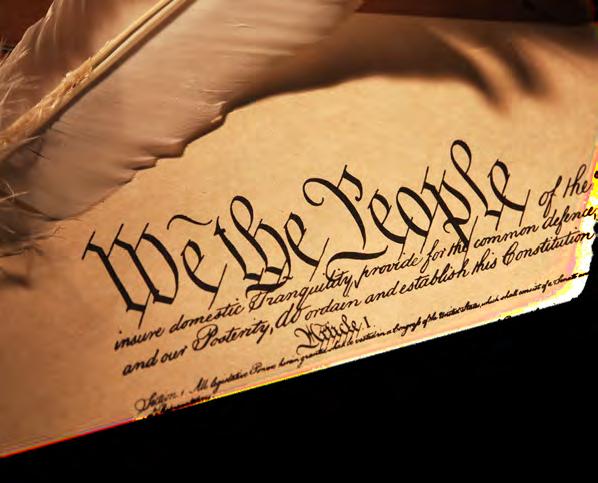 We the People of the
insure domestic Tranquility, provide for the common defence,
and our Posterity, do ordain and establish this Constitution
Article I.
Section 1. All legislative Powers herein granted shall be vested in a Congress of the United States, which shall consist of a Senate and